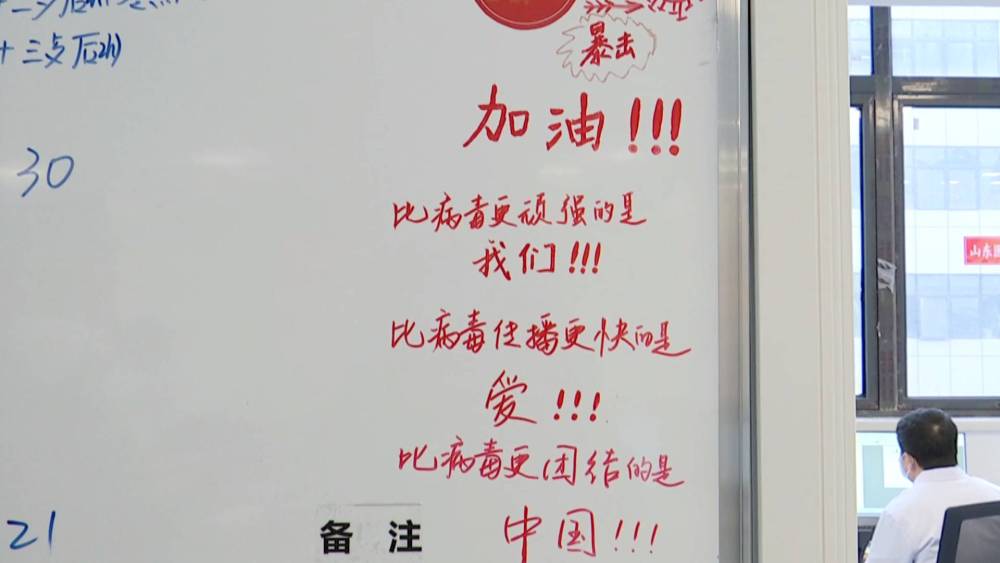 暴击
加油!!!
30
比病毒更顽强的是
我们!!!
山东
比病毒传播更快的是
爱!!!
比病毒更团结的是
21
备 注
中国!!!